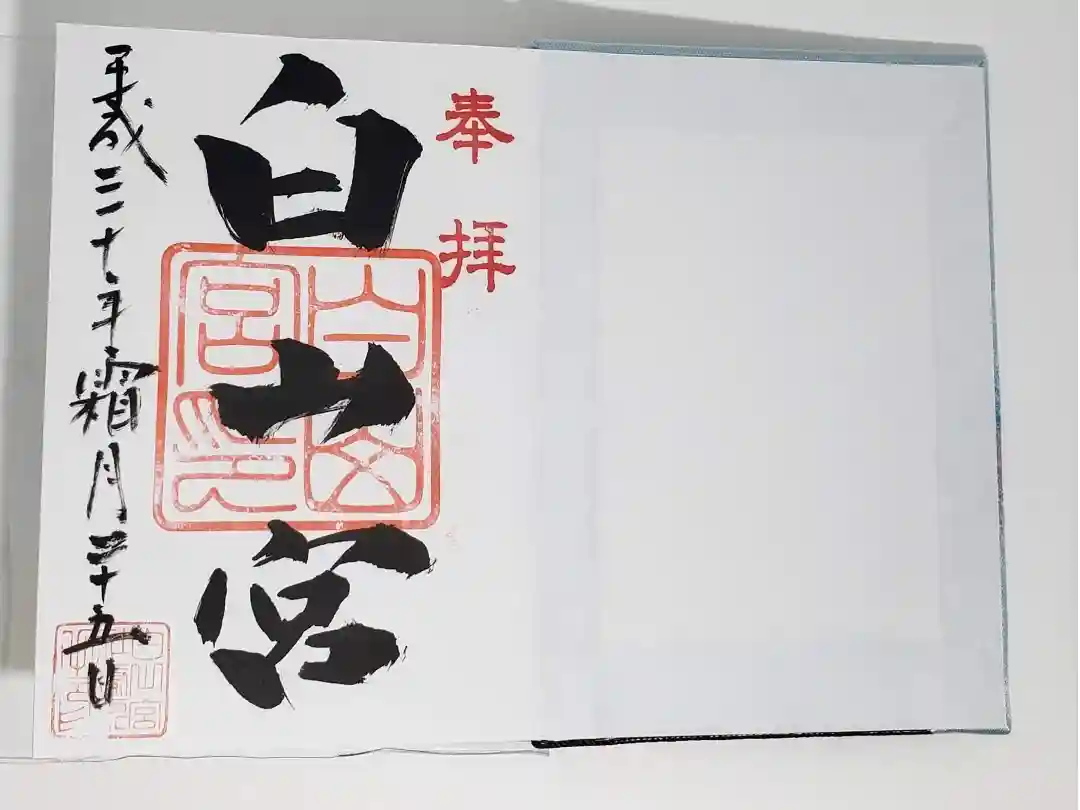 奉拝
白山宮
白山宮印
平成三十年霜月二十五日